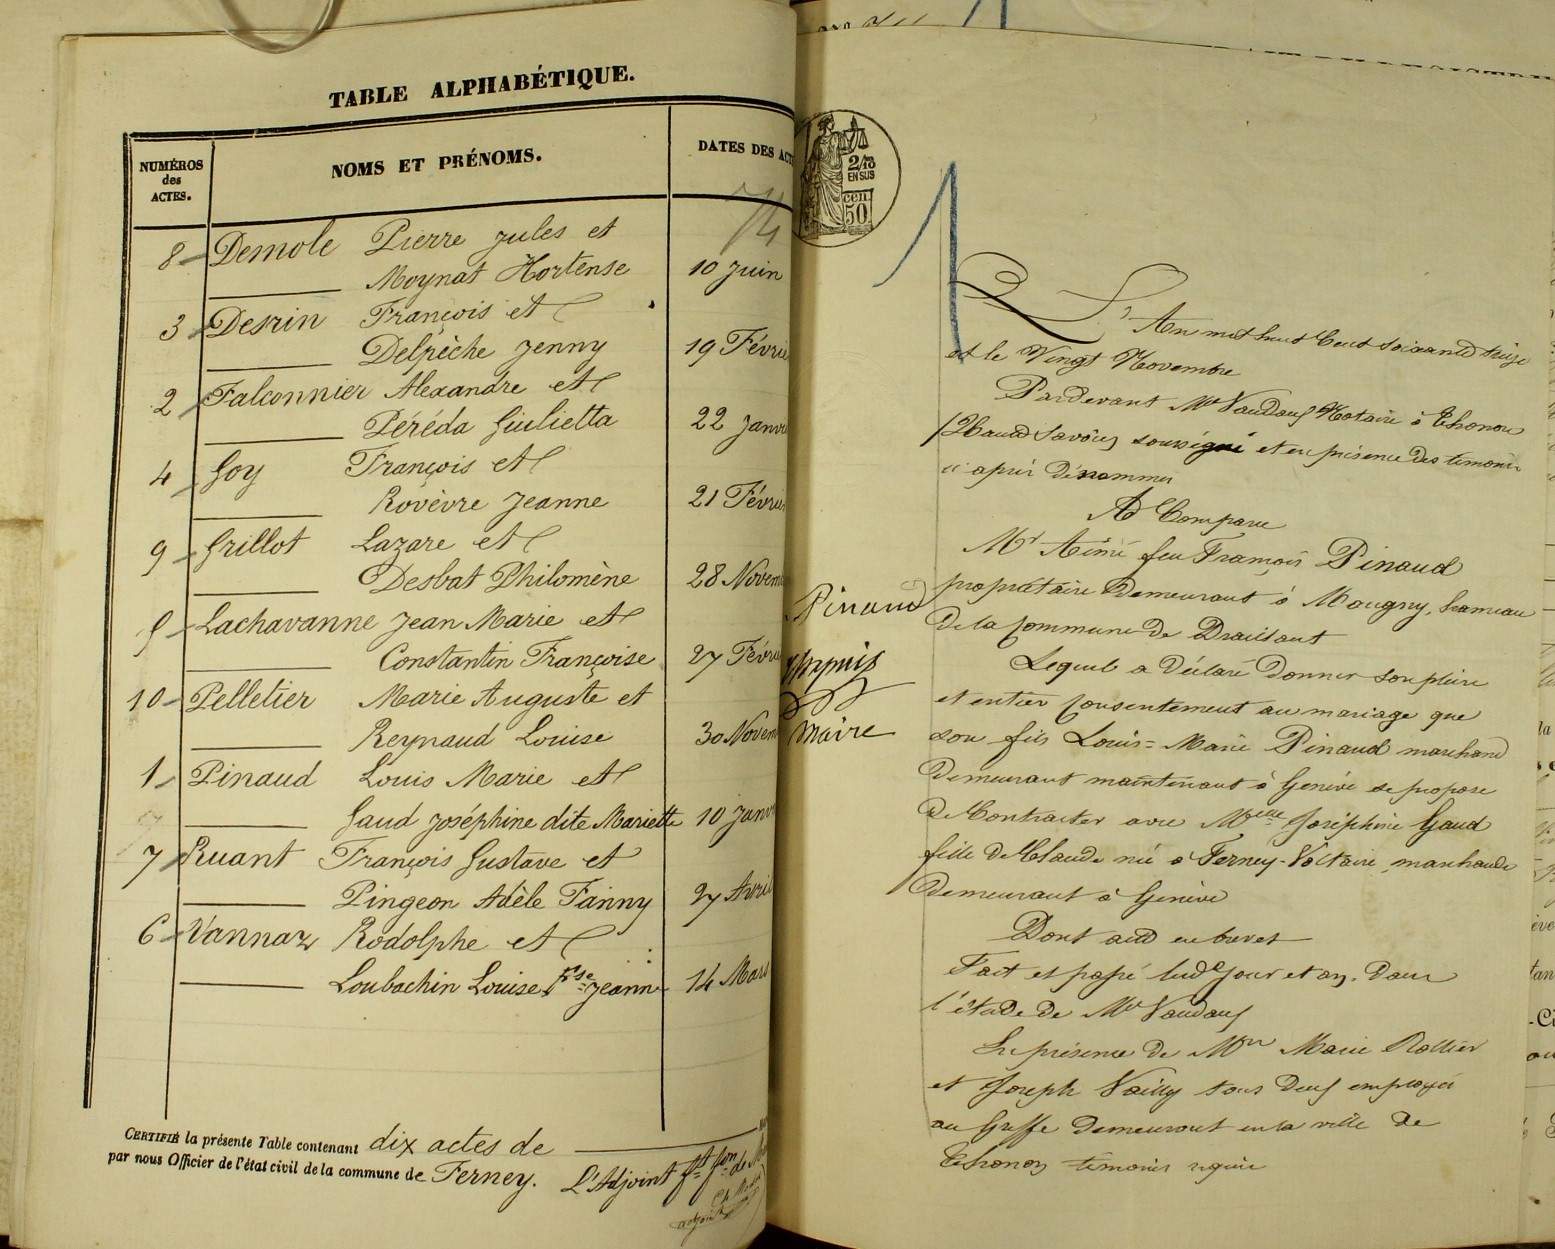 TABLE ALPHABÉTIQUE.
NUMÉROS des ACTES.
NOMS ET PRÉNOMS.
DATES DES ACT
74
8 Demole Pierre Jules et
Moynat Hortense 10 Juin
3 Desrin François et
Delpèche Jenny 19 Févrie
2 Falconnier Alexandre et
Péréda Giulietta 22 Janv
4 Goy François et
Rovèvre Jeanne 21 Févrie
9 Grillot Lazare et
Desbat Philomène 28 Novem
5 Lachavanne Jean Marie et
Constantin Françoise 27 Févri
10 Pelletier Marie Auguste et
Reynaud Louise 30 Novem
1 Pinaud Louis Marie et
Gaud Joséphine dite Mariette 10 Janv
7 Ruant François Gustave et
Pingeon Adèle Fanny 27 Avril
6 Vannaz Rodolphe et
Loubachin Louise Fse Jeanne 14 Mars
CERTIFIÉ la présente Table contenant dix actes de
par nous Officier de l'état civil de la commune de Ferney. L'Adjoint
2/10
EN SUS
cen
50
1
L'An mil huit Cent soixante treize
et le Vingt Novembre
Pardevant Me Vaudaux Notaire à Thonon
(Haute Savoie) soussigné et en présence des temoins
ci après dénommés
A Comparu
Mr Aimé feu François Pinaud
propriétaire demeurant à Maugny, hameau
de la Commune de Draillant
Lequel a déclaré donner son plein
et entier consentement au mariage que
son fils Louis-Marie Pinaud marchand
demeurant maintenant à Genève se propose
de Contracter avec Melle Joséphine Gaud
fille de Claude née à Ferney-Voltaire, marchande
demeurant à Genève
Dont acte en brevet
Fait et passé lesd jour et an. dans
l'étude de Me Vaudaux
En présence de Mrs Marie Rollier
et Joseph Vailly tous deux employés
au Greffe demeurant en la ville de
Thonon témoins requis
Pinaud
Maire